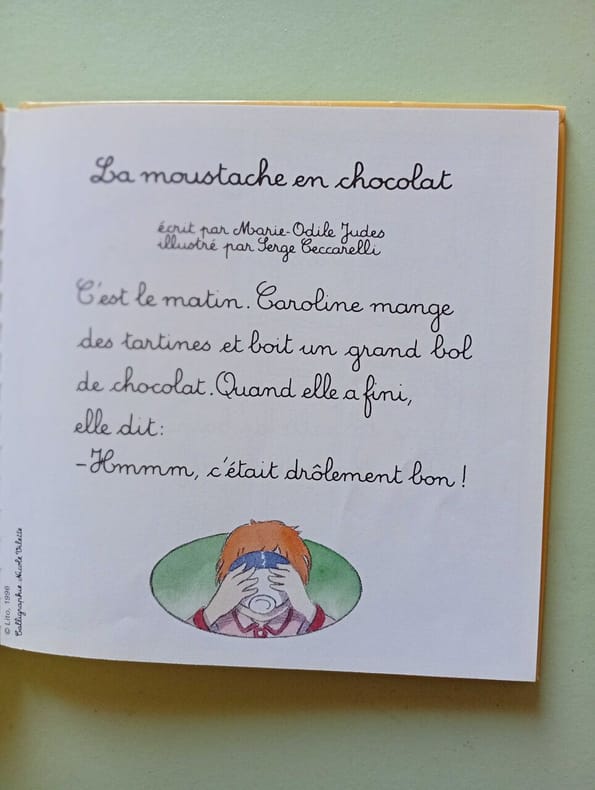 La moustache en chocolat
écrit par Marie-Odile Judes
illustré par Serge Ceccarelli
C'est le matin. Caroline mange
des tartines et boit un grand bol
de chocolat. Quand elle a fini,
elle dit:
-Hmmm, c'était drôlement bon !
© Lito, 1996
Calligraphie Nicole Vilette